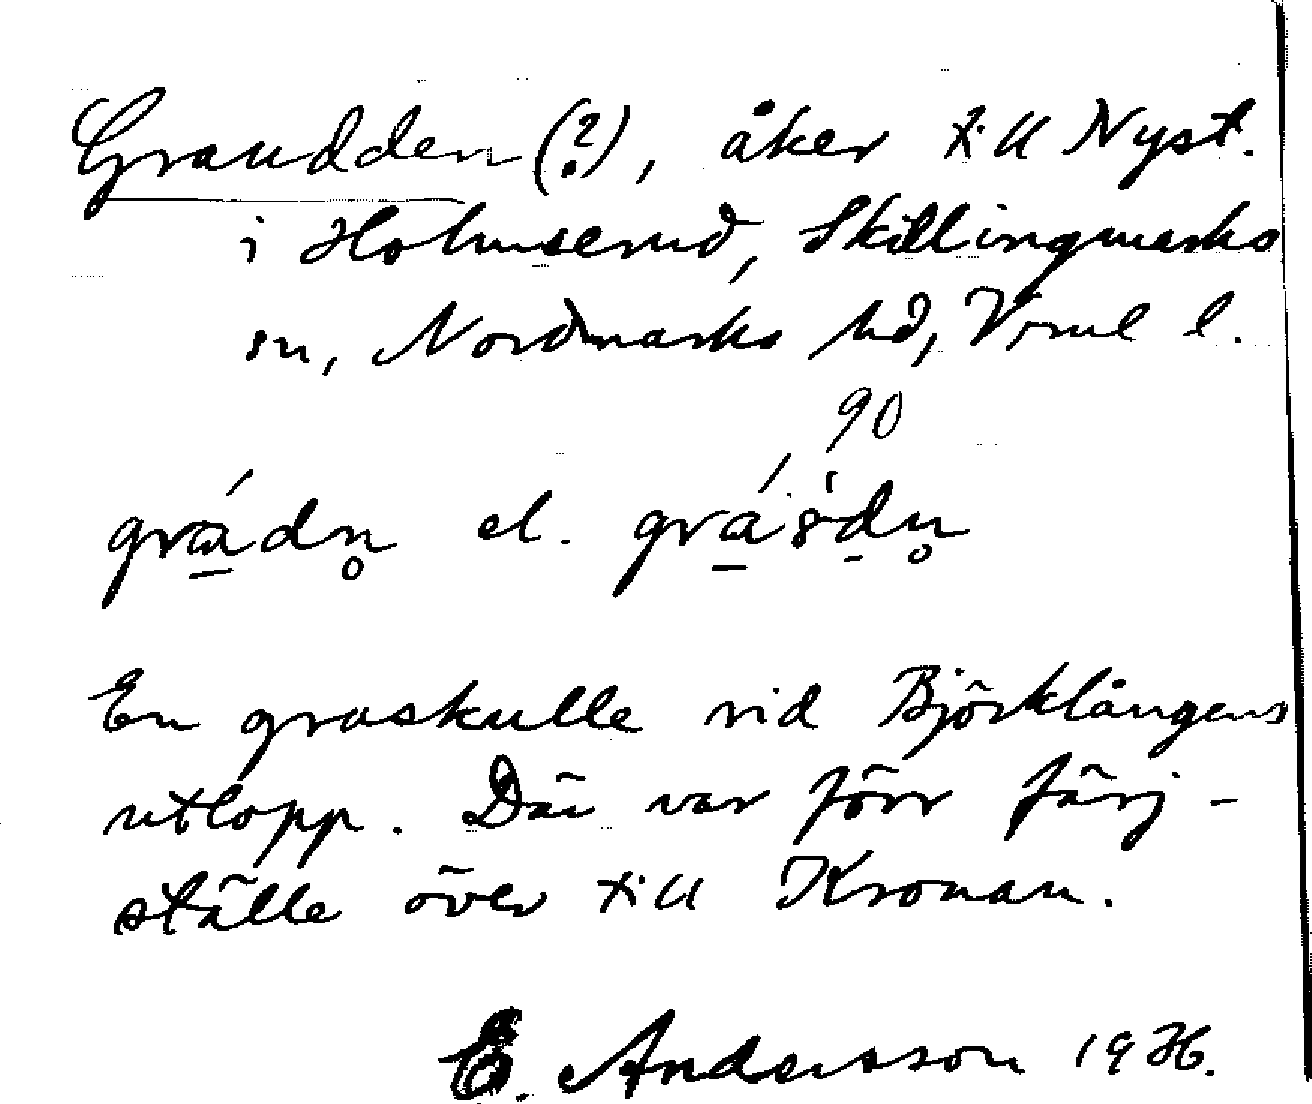 Graudden (?), åker till Nyst.
i Holmserud, Skillingmarks
sn, Nordmarks hd, Vrml l.
90
el.
En graskulle vid Björklångens
utlopp. Där var förr färj-
ställe över till Kronan.
E. Andersson 1936.